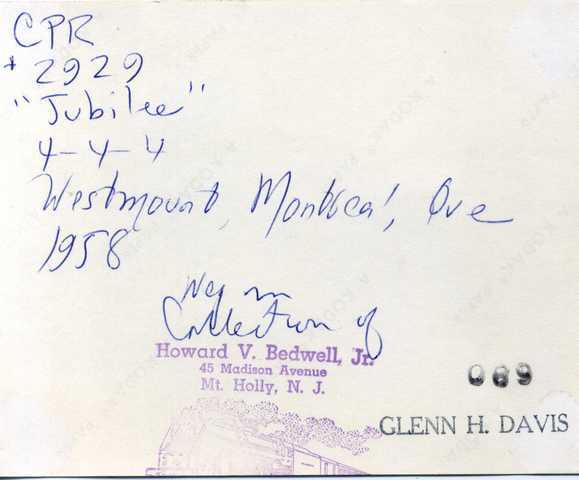 CPR
# 2929
"Jubilee"
4-4-4
Westmount, Montreal, Que
1958
Neg in
Collection of
Howard V. Bedwell, Jr.
45 Madison Avenue
Mt. Holly, N. J.
069
GLENN H. DAVIS